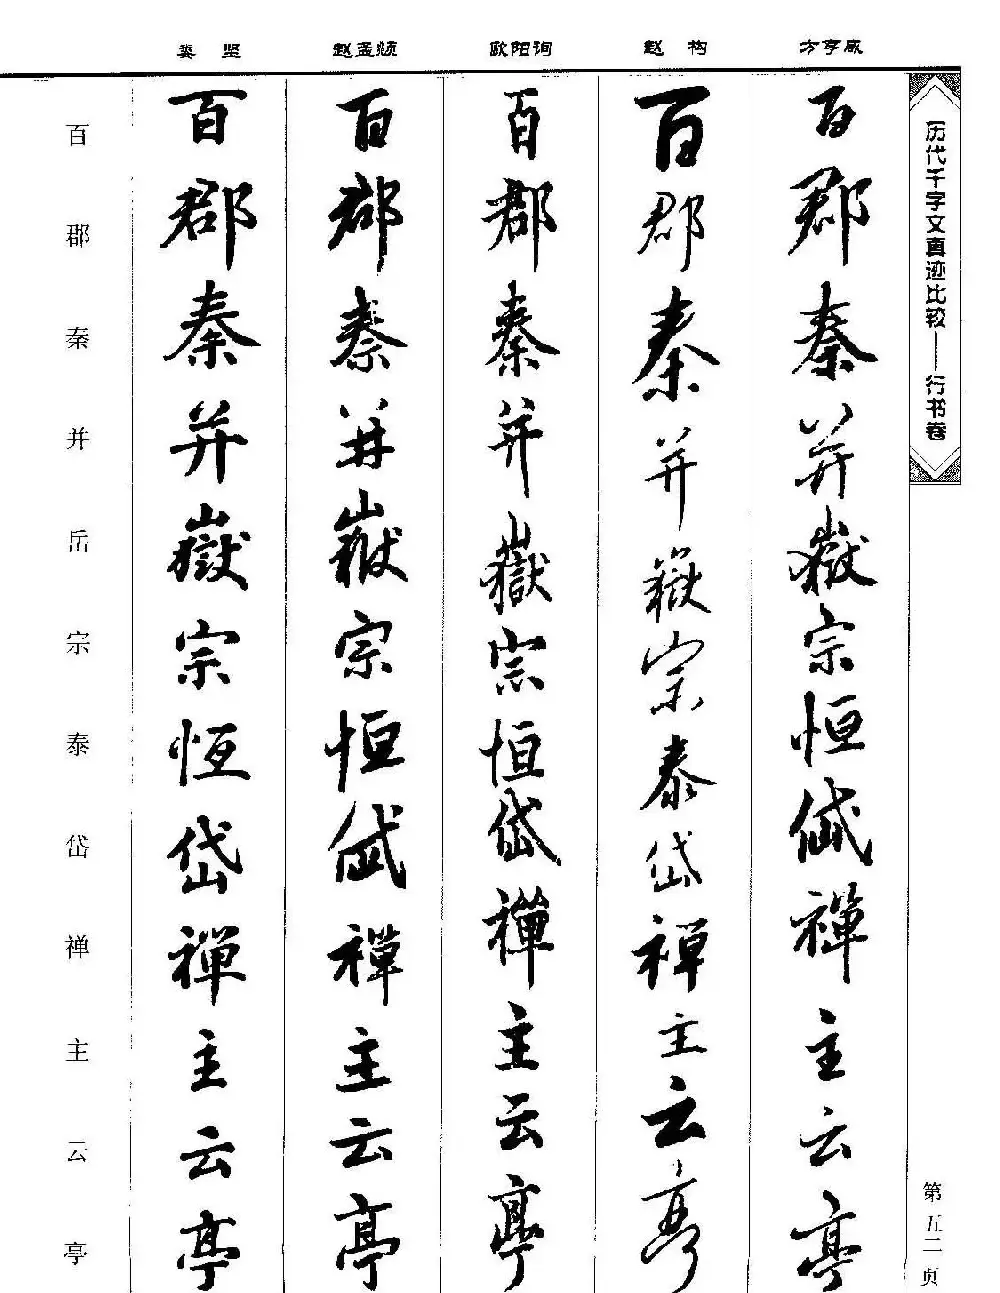 娄 坚 赵孟頫 欧阳询 赵 构 方亨咸
百郡秦并岳宗泰岱禅主云亭
百郡秦并嶽宗恆岱禪主云亭
百郡秦并嶽宗恒岱禪主云亭
百郡秦并嶽宗恒岱禪主云亭
百郡秦并嶽宗泰岱禪主云亭
百郡秦并嶽宗恒岱禪主云亭
历代千字文真迹比较——行书卷
第五二页